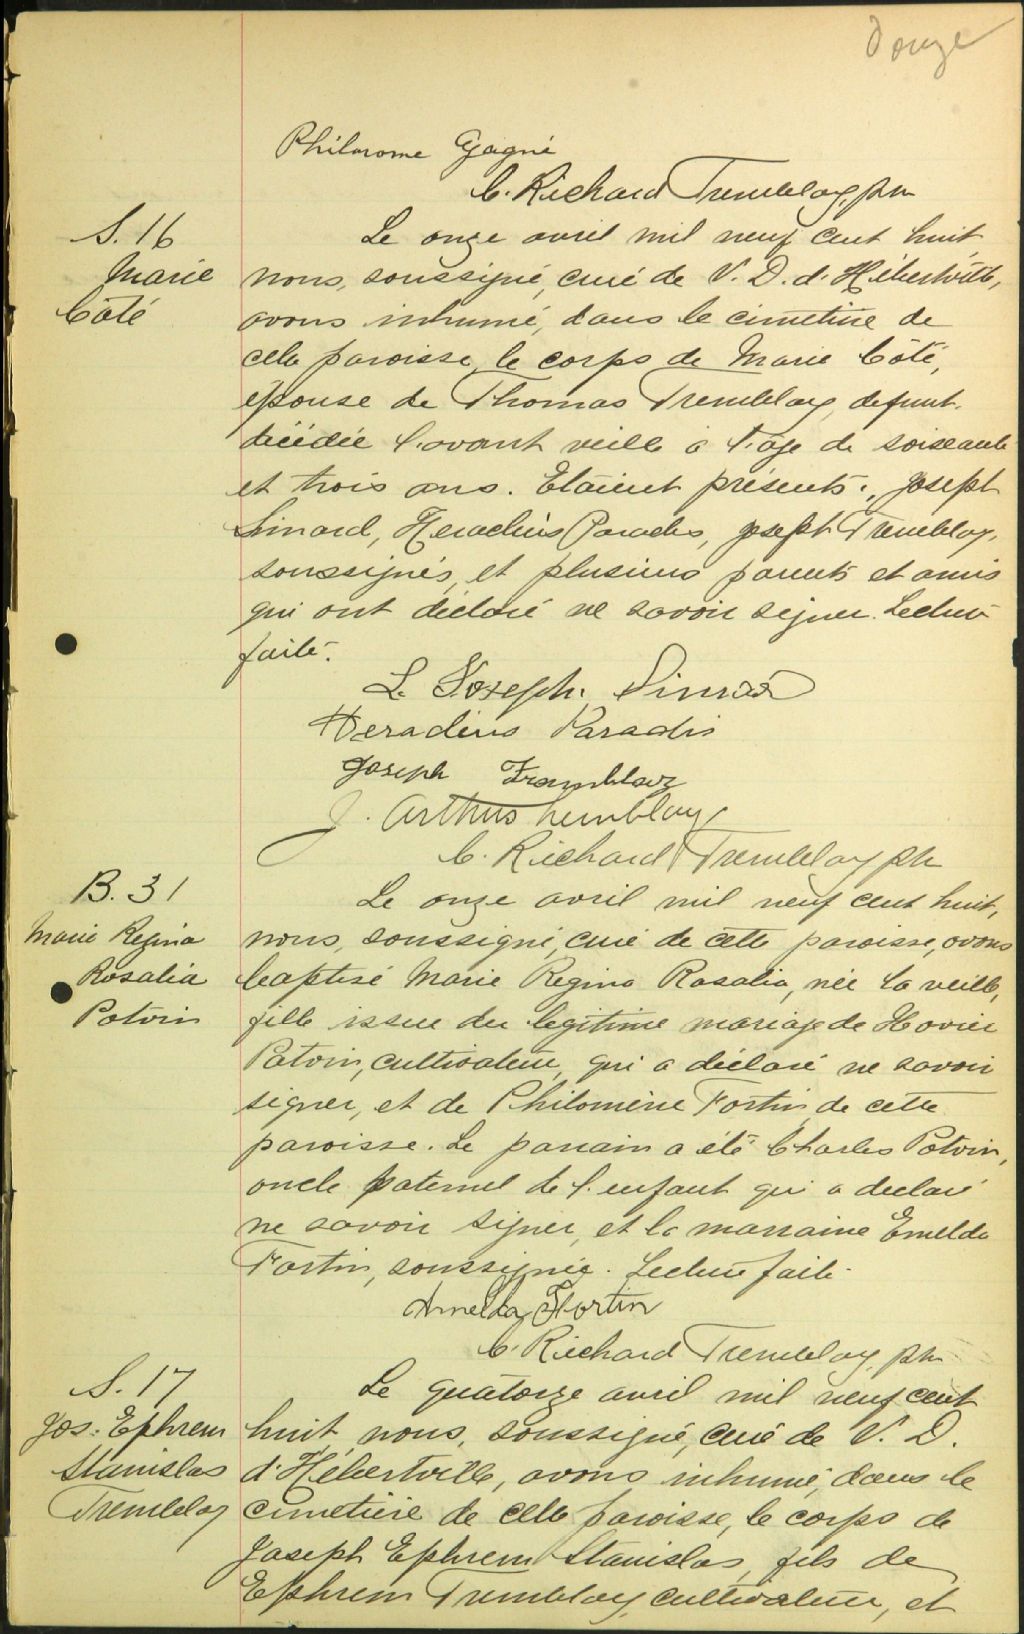 Douze
Philorome Gagné
C. Richard Tremblay, ptr
S. 16
Marie
Côté
Le onze avril mil neuf cent huit
nous, soussigné, curé de N. D. d'Hébertville,
avons inhumé, dans le cimetière de
cette paroisse, le corps de Marie Côté,
épouse de Thomas Tremblay, defunt,
décédée l'avant veille à l'age de soixante
et trois ans. Etaient présents: Joseph
Simard, Heraclius Paradis, Joseph Tremblay,
soussignés, et plusieurs parents et amis
qui ont déclaré ne savoir signer. Lecture
faite.
L. Joseph. Simard
Heraclius Paradis
Joseph Tremblay
J. Arthur Tremblay
C. Richard Tremblay ptr
B. 31
Marie Regina
Rosalia
Potvin
Le onze avril mil neuf cent huit,
nous, soussigné, curé de cette paroisse, avons
baptisé Marie Regina Rosalia, née la veille,
fille issue du legitime mariage de Xavier
Potvin, cultivateur, qui a déclaré ne savoir
signer, et de Philomène Fortin, de cette
paroisse. Le parrain a été Charles Potvin,
oncle paternel de l'enfant qui a declaré
ne savoir signer, et la marraine Emelda
Fortin, soussignée. Lecture faite.
Amelda Fortin
C. Richard Tremblay, ptr
S. 17
Jos: Ephrem
Stanislas
Tremblay
Le quatorze avril mil neuf cent
huit, nous, soussigné, curé de N. D.
d'Hébertville, avons inhumé, dans le
cimetière de cette paroisse, le corps de
Joseph Ephrem Stanislas, fils de
Ephrem Tremblay, cultivateur, et